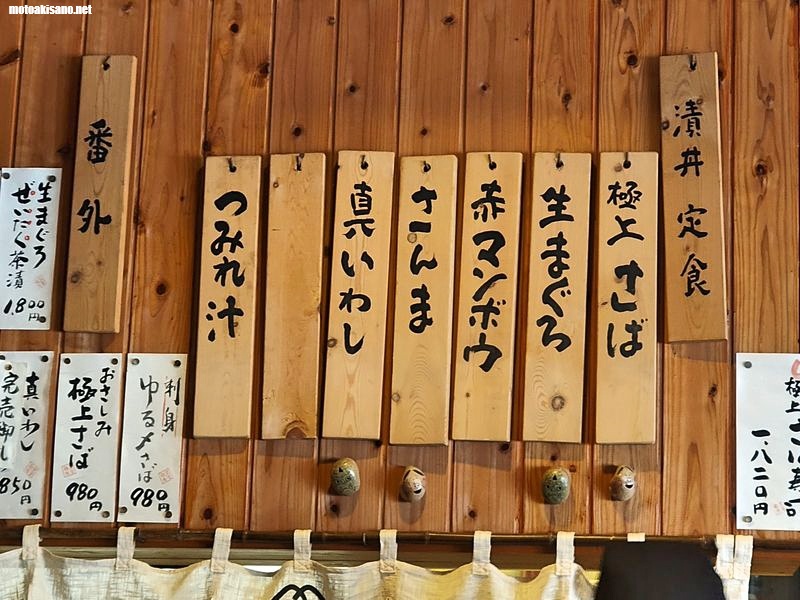 motoakisano.net
漬丼定食
極上さば
生まぐろ
赤マンボウ
さんま
真いわし
つみれ汁
番外
生まぐろ
ぜいたく茶漬
1,800円
刺身
ゆる〆さば
980円
おさしみ
極上さば
980円
真いわし
850円
極上さば寿司
一、八二〇円